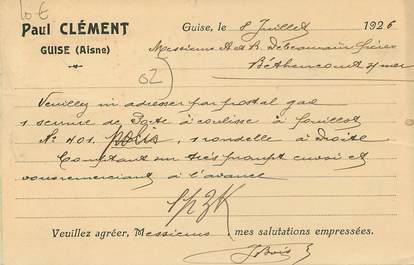 10 €
Paul CLÉMENT
GUISE (Aisne)
Guise, le 8 Juillet 1926
Messieurs A & R Debeaurain frères
Béthencourt s/mer
02
Veuillez m'adresser par postal gare
1 serrure de Porte à coulisse à fouillot
No 401 polis, 1 rondelle à droite
Comptant sur très prompt envoi et
vous remerciant à l'avance
Veuillez agréer, Messieurs mes salutations empressées.